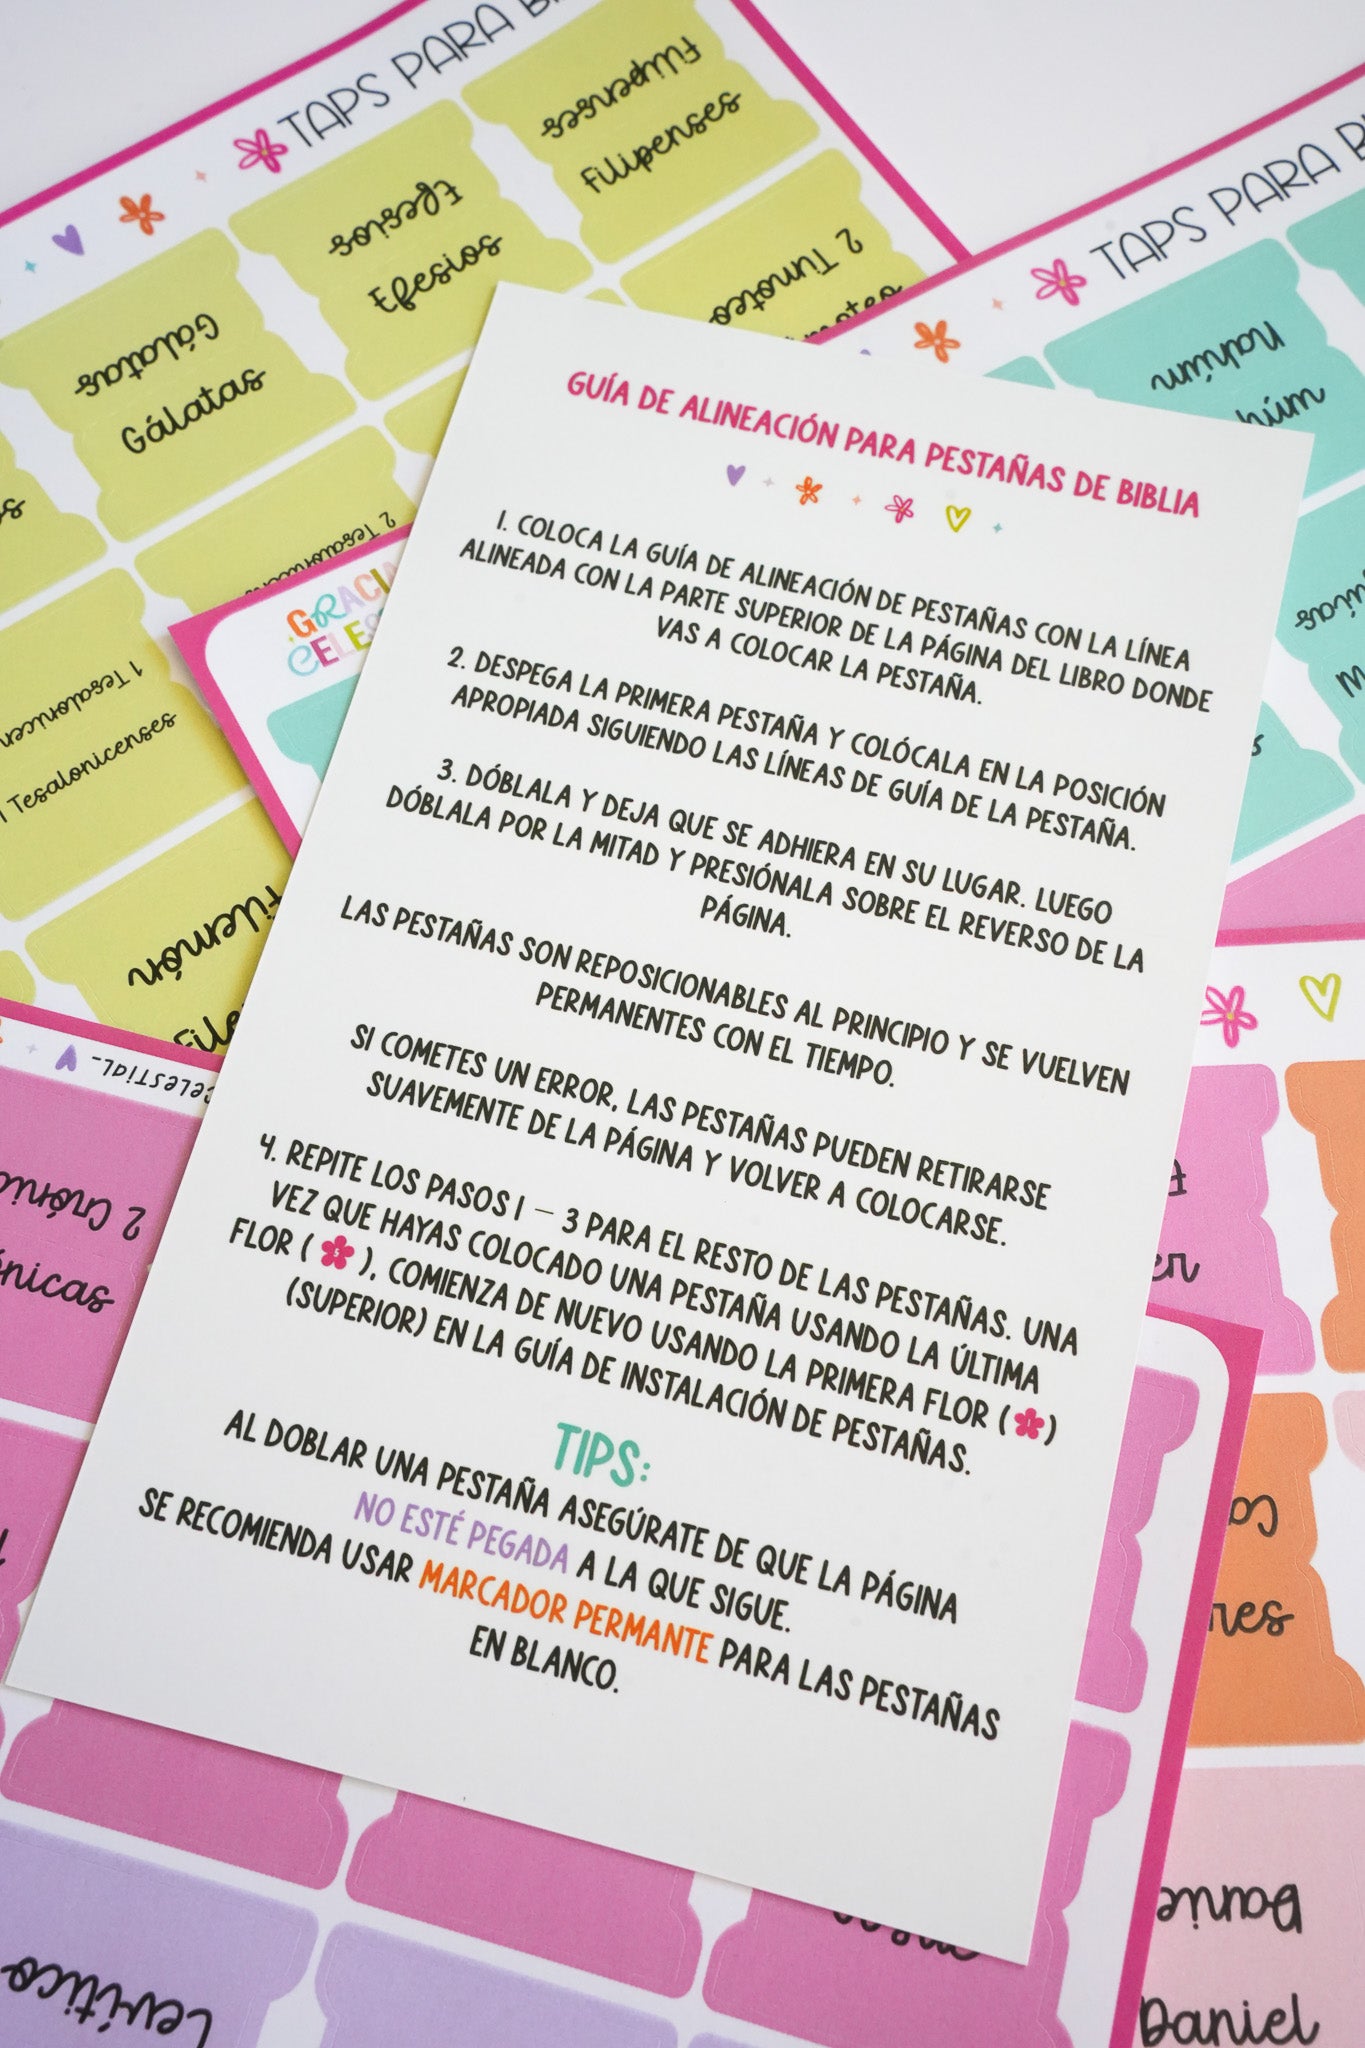 TAPS PARA
Filipenses
Filipenses
Efesios
Efesios
Gálatas
Gálatas
2 Timoteo
TAPS PARA
Nahúm
húm
GUÍA DE ALINEACIÓN PARA PESTAÑAS DE BIBLIA
1. COLOCA LA GUÍA DE ALINEACIÓN DE PESTAÑAS CON LA LÍNEA
ALINEADA CON LA PARTE SUPERIOR DE LA PÁGINA DEL LIBRO DONDE
VAS A COLOCAR LA PESTAÑA.
2. DESPEGA LA PRIMERA PESTAÑA Y COLÓCALA EN LA POSICIÓN
APROPIADA SIGUIENDO LAS LÍNEAS DE GUÍA DE LA PESTAÑA.
3. DÓBLALA Y DEJA QUE SE ADHIERA EN SU LUGAR. LUEGO
DÓBLALA POR LA MITAD Y PRESIÓNALA SOBRE EL REVERSO DE LA
PÁGINA.
LAS PESTAÑAS SON REPOSICIONABLES AL PRINCIPIO Y SE VUELVEN
PERMANENTES CON EL TIEMPO.
SI COMETES UN ERROR, LAS PESTAÑAS PUEDEN RETIRARSE
SUAVEMENTE DE LA PÁGINA Y VOLVER A COLOCARSE.
4. REPITE LOS PASOS 1 – 3 PARA EL RESTO DE LAS PESTAÑAS. UNA
VEZ QUE HAYAS COLOCADO UNA PESTAÑA USANDO LA ÚLTIMA
FLOR ( 5 ), COMIENZA DE NUEVO USANDO LA PRIMERA FLOR ( 1 )
(SUPERIOR) EN LA GUÍA DE INSTALACIÓN DE PESTAÑAS.
TIPS:
AL DOBLAR UNA PESTAÑA ASEGÚRATE DE QUE LA PÁGINA
NO ESTÉ PEGADA A LA QUE SIGUE.
SE RECOMIENDA USAR MARCADOR PERMANTE PARA LAS PESTAÑAS
EN BLANCO.
1 Tesalonicenses
Filemón
CELESTIAL
2 Crónic
ónicas
Levítico
Daniel